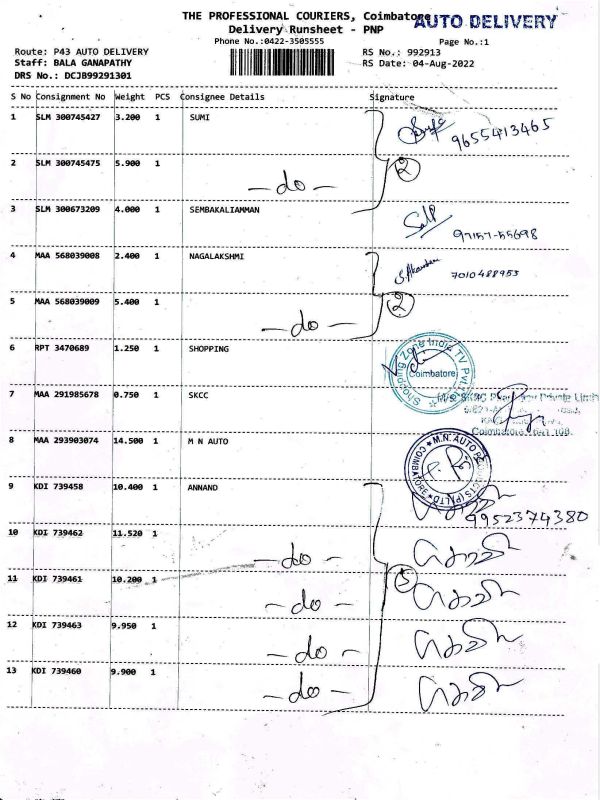 THE PROFESSIONAL COURIERS, Coimbatore
AUTO DELIVERY
Delivery Runsheet - PNP
Phone No.:0422-3505555
Page No.:1
Route: P43 AUTO DELIVERY
RS No.: 992913
Staff: BALA GANAPATHY
RS Date: 04-Aug-2022
DRS No.: DCJB99291301
S No Consignment No Weight PCS Consignee Details Signature
1 SLM 300745427 3.200 1 SUMI
9655413465
2 SLM 300745475 5.900 1 - do - 2
3 SLM 300673209 4.000 1 SEMBAKALIAMMAN
97157-55698
4 MAA 568039008 2.400 1 NAGALAKSHMI
7010488953
5 MAA 568039009 5.400 1 - do - 2
6 RPT 3470689 1.250 1 SHOPPING
Shopping Zone India TV Pvt.
Coimbatore
7 MAA 291985678 0.750 1 SKCC
Private Limit
8 MAA 293903074 14.500 1 M N AUTO
M.N. AUTO PRODUCTS (P) LTD
COIMBATORE
9 KDI 739458 10.400 1 ANNAND
9952374380
10 KDI 739462 11.520 1 - do -
11 KDI 739461 10.200 1 - do - 5
12 KDI 739463 9.950 1 - do -
13 KDI 739460 9.900 1 - do -